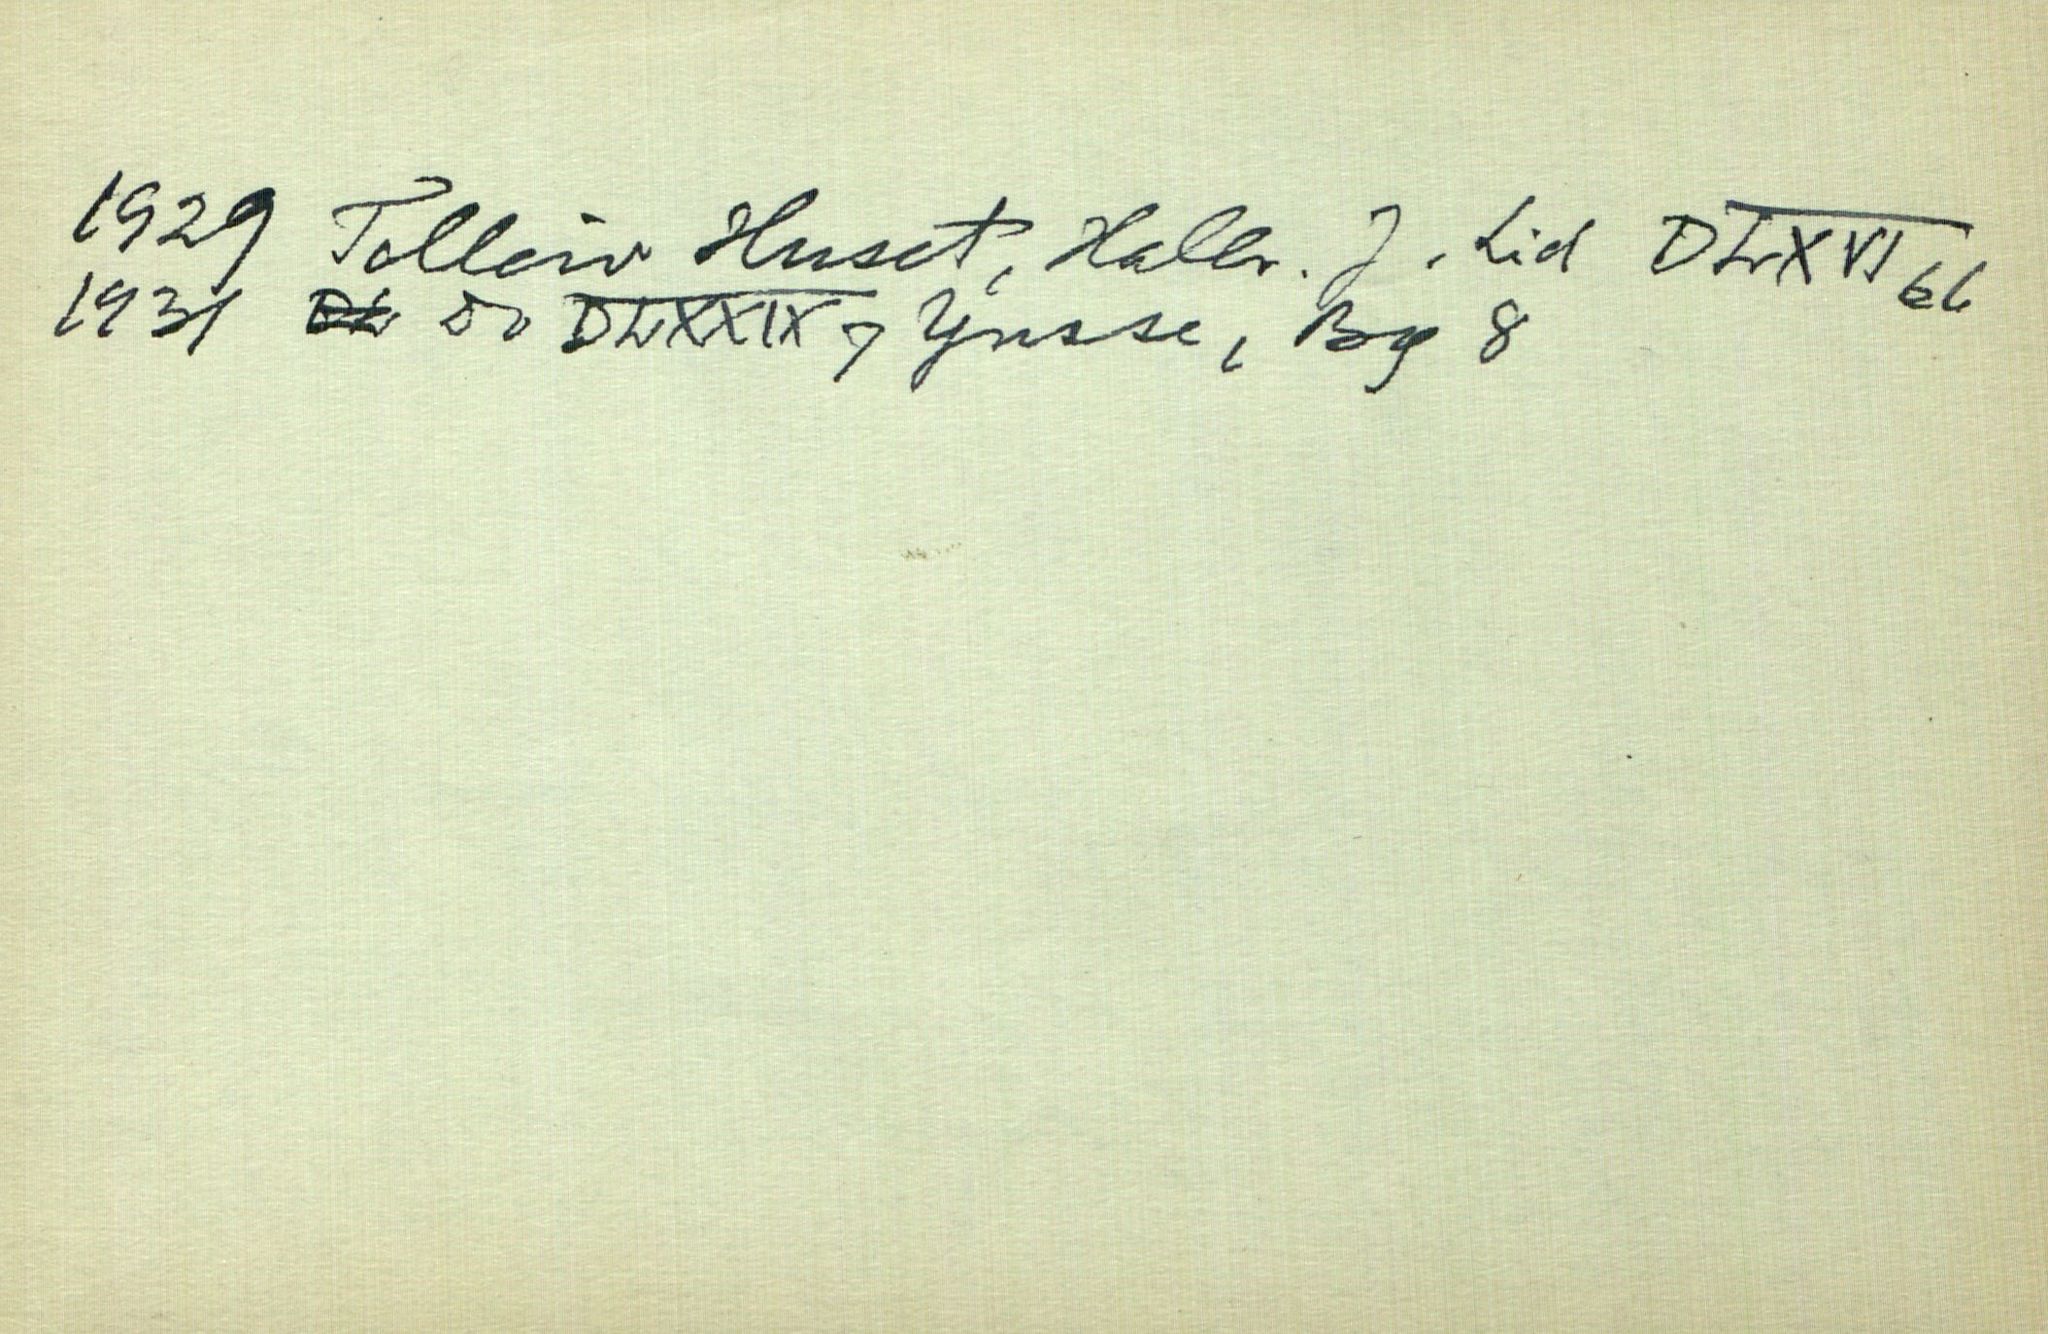 1929 Tolleiv Huset, Hallv. J. Lid DLXVI 66
1931 DL Do DLXXIX 7 Ynsse, Bg 8